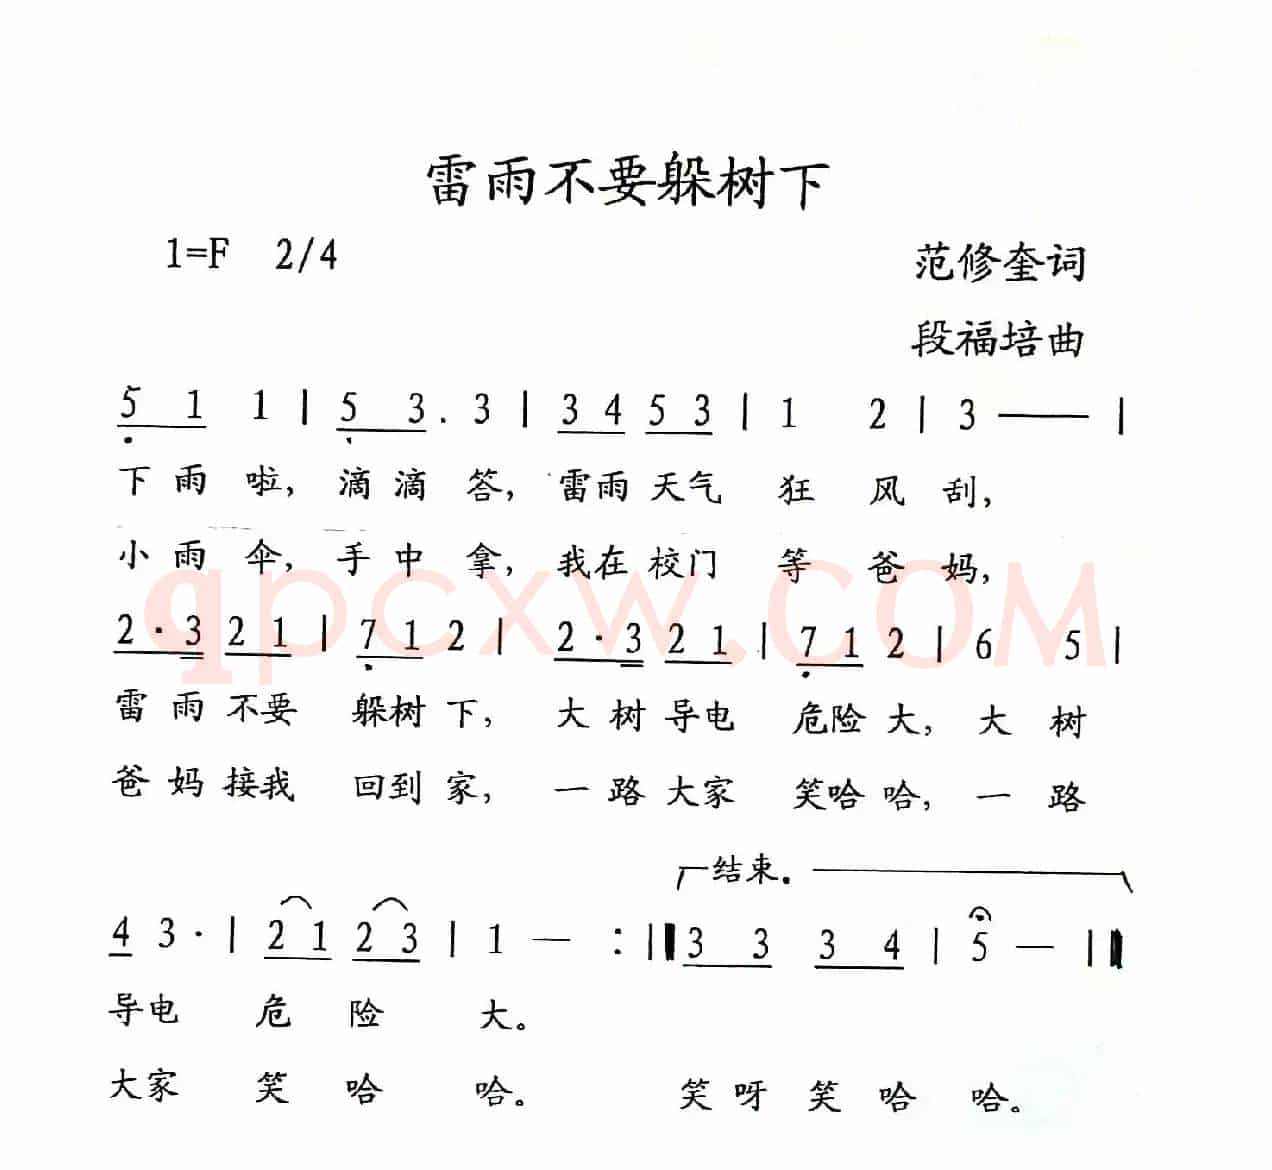 雷雨不要躲树下
1=F 2/4 范修奎词
段福培曲
5 1 1 | 5 3 . 3 | 3 4 5 3 | 1 2 | 3 —— |
下 雨 啦， 滴 滴 答， 雷雨 天气 狂 风 刮，
小 雨 伞， 手 中 拿， 我在 校门 等 爸 妈，
qpcxw.COM
2 · 3 2 1 | 7 1 2 | 2 · 3 2 1 | 7 1 2 | 6 5 |
雷 雨 不要 躲树 下， 大 树 导电 危险 大， 大 树
爸 妈 接我 回到 家， 一 路 大家 笑哈 哈， 一 路
结束.
4 3 · | 2 1 2 3 | 1 — :|| 3 3 3 4 | 5 — ||
导电 危 险 大。
大家 笑 哈 哈。 笑 呀 笑 哈 哈。